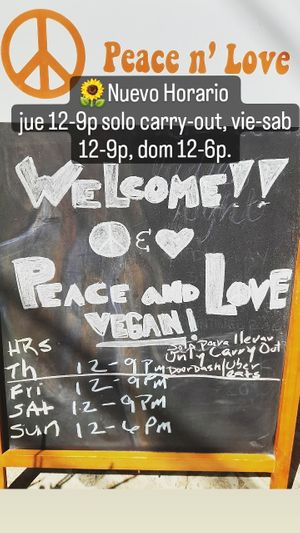 Peace n' Love
🌻 Nuevo Horario
jue 12-9p solo carry-out, vie-sab
12-9p, dom 12-6p.
WELCOME!!
☮ & ♥
PEACE AND LOVE
VEGAN!
HRS
Solo para llevar
Only Carry Out
DoorDash/Uber eats
Th 12-9pm
Fri 12-9pm
SAt 12-9pm
Sun 12-6pm